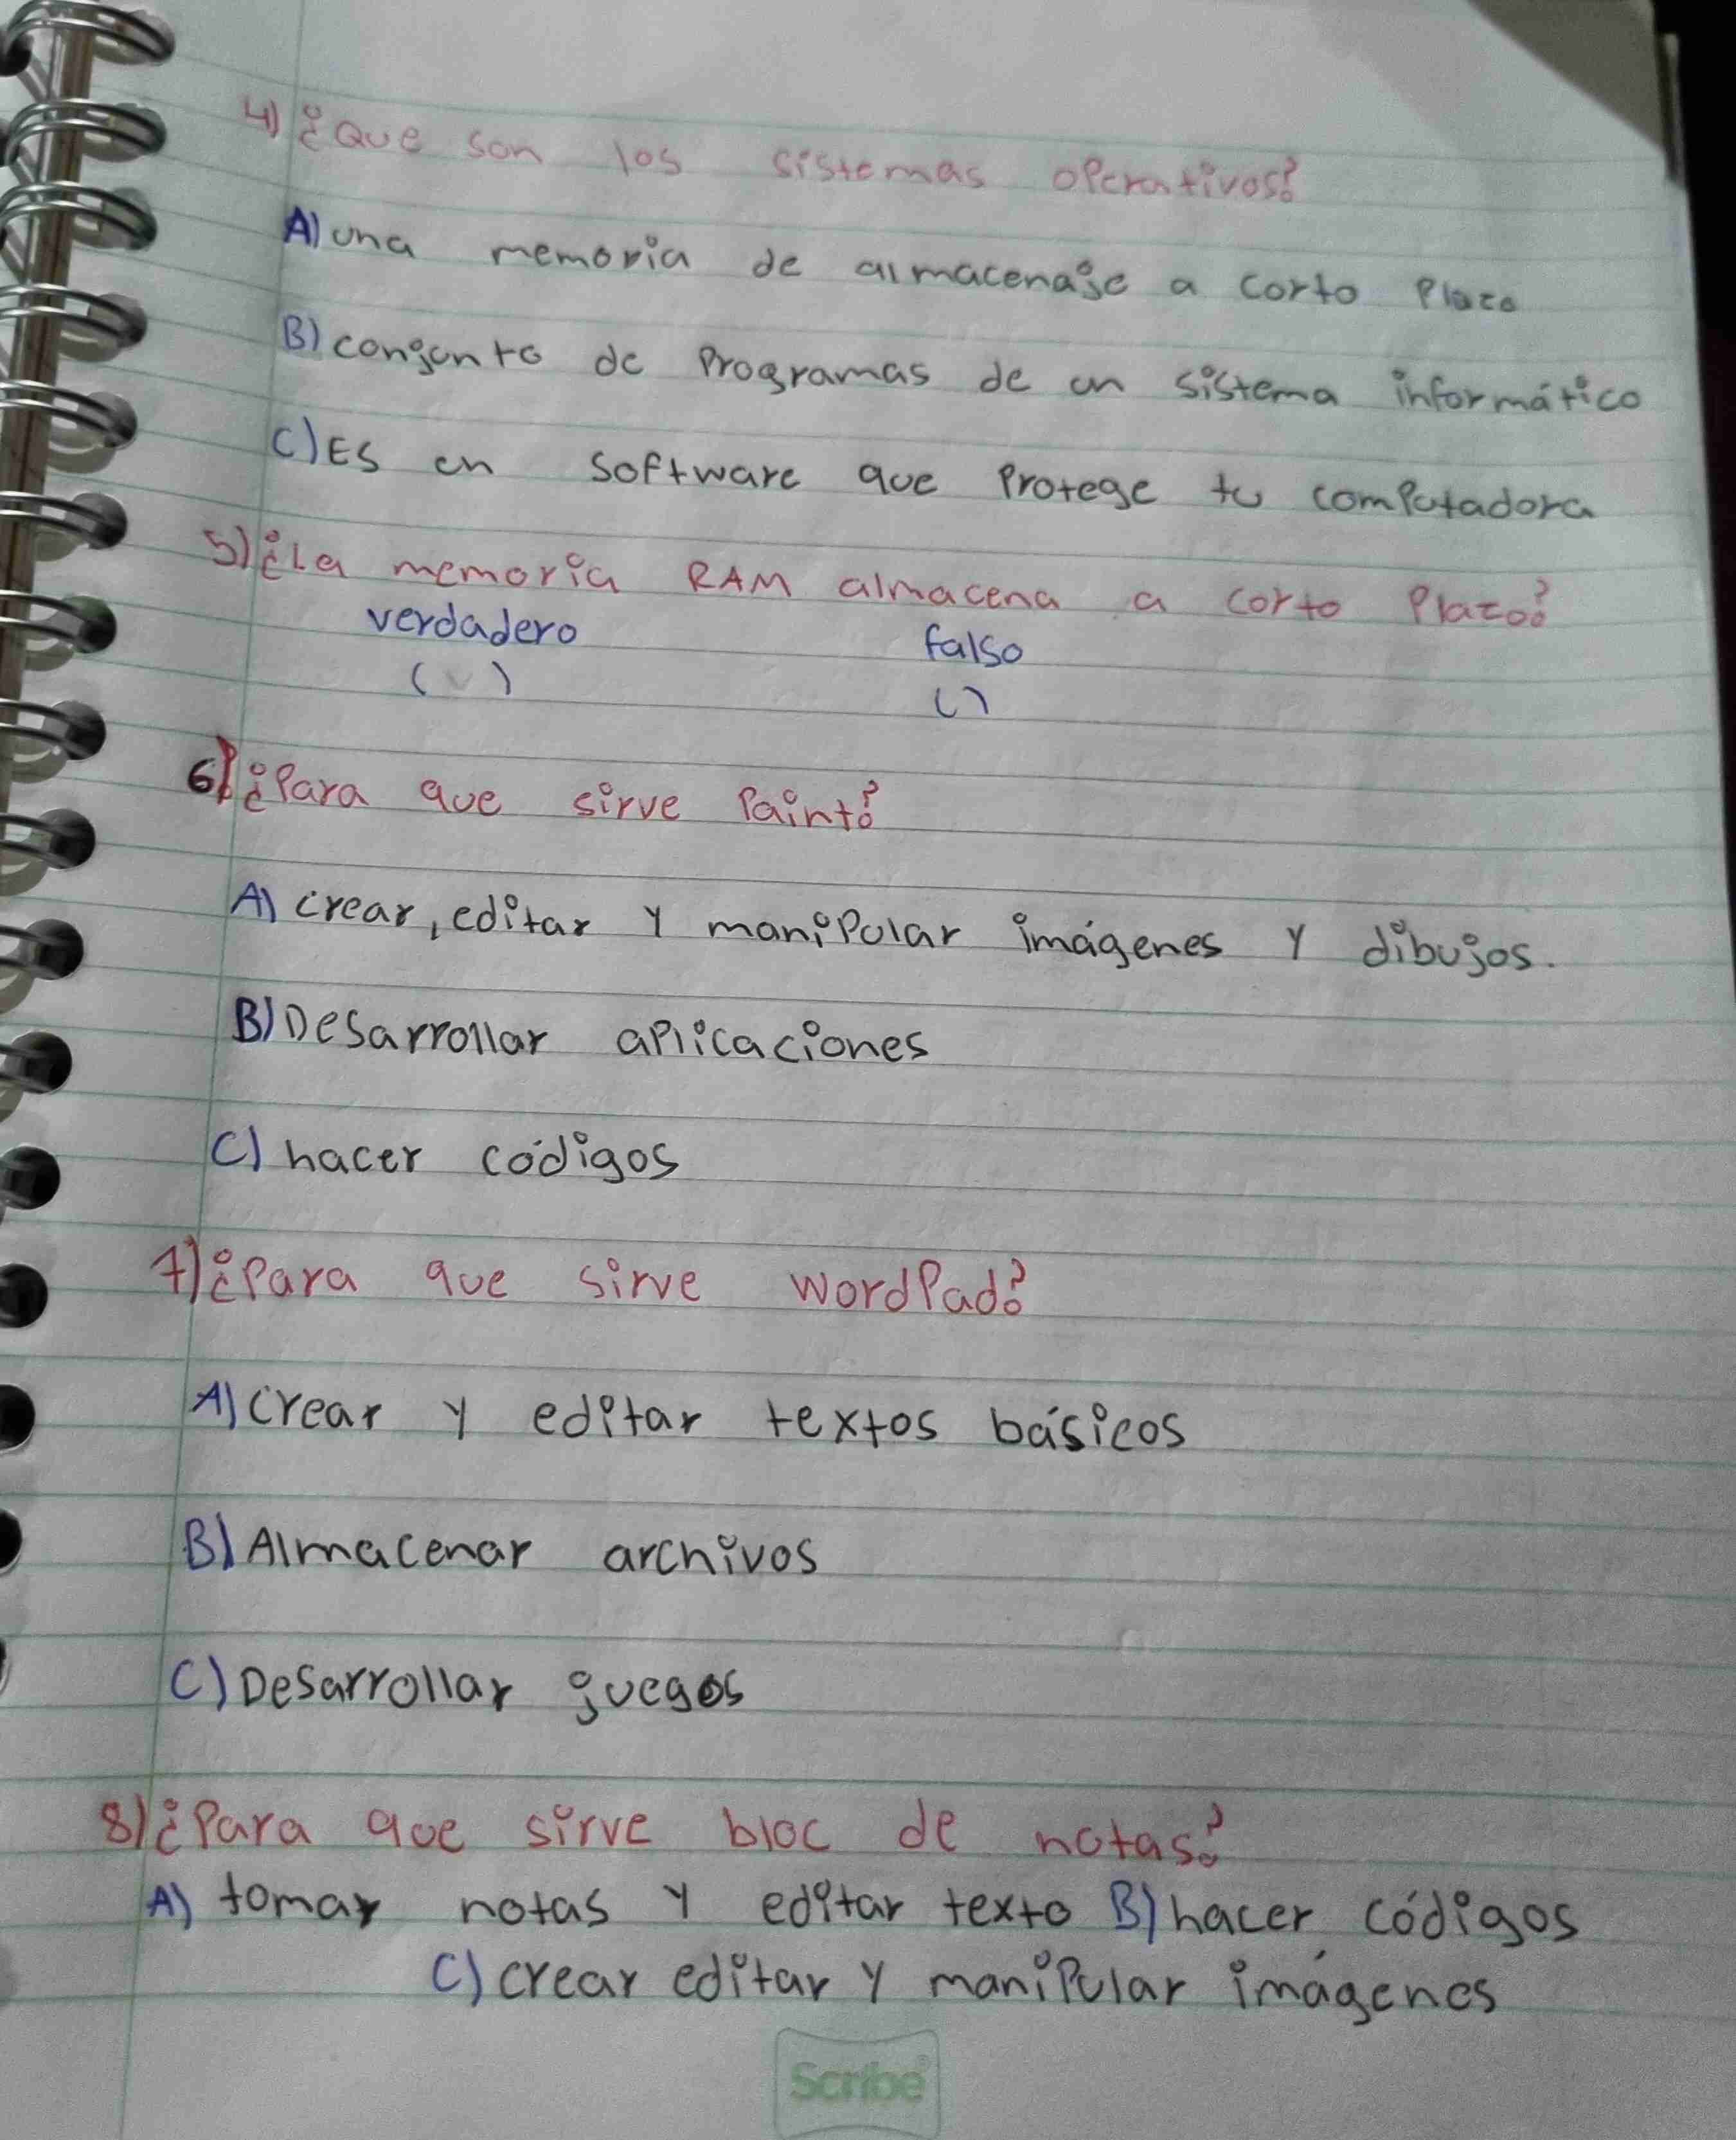 4) ¿Que son los sistemas operativos?
A) una memoria de almacenaje a corto Plazo
B) conjunto de Programas de un sistema informático
C) ES un software que Protege tu computadora
5) ¿La memoria RAM almacena a corto Plazo?
verdadero falso
( v ) ( )
6) ¿Para que sirve Paint?
A) crear, editar y manipular imágenes y dibujos.
B) Desarrollar aplicaciones
C) hacer códigos
7) ¿Para que sirve WordPad?
A) crear y editar textos básicos
B) Almacenar archivos
C) Desarrollar juegos
8) ¿Para que sirve bloc de notas?
A) tomar notas y editar texto B) hacer códigos
C) crear editar y manipular imágenes
Scribe